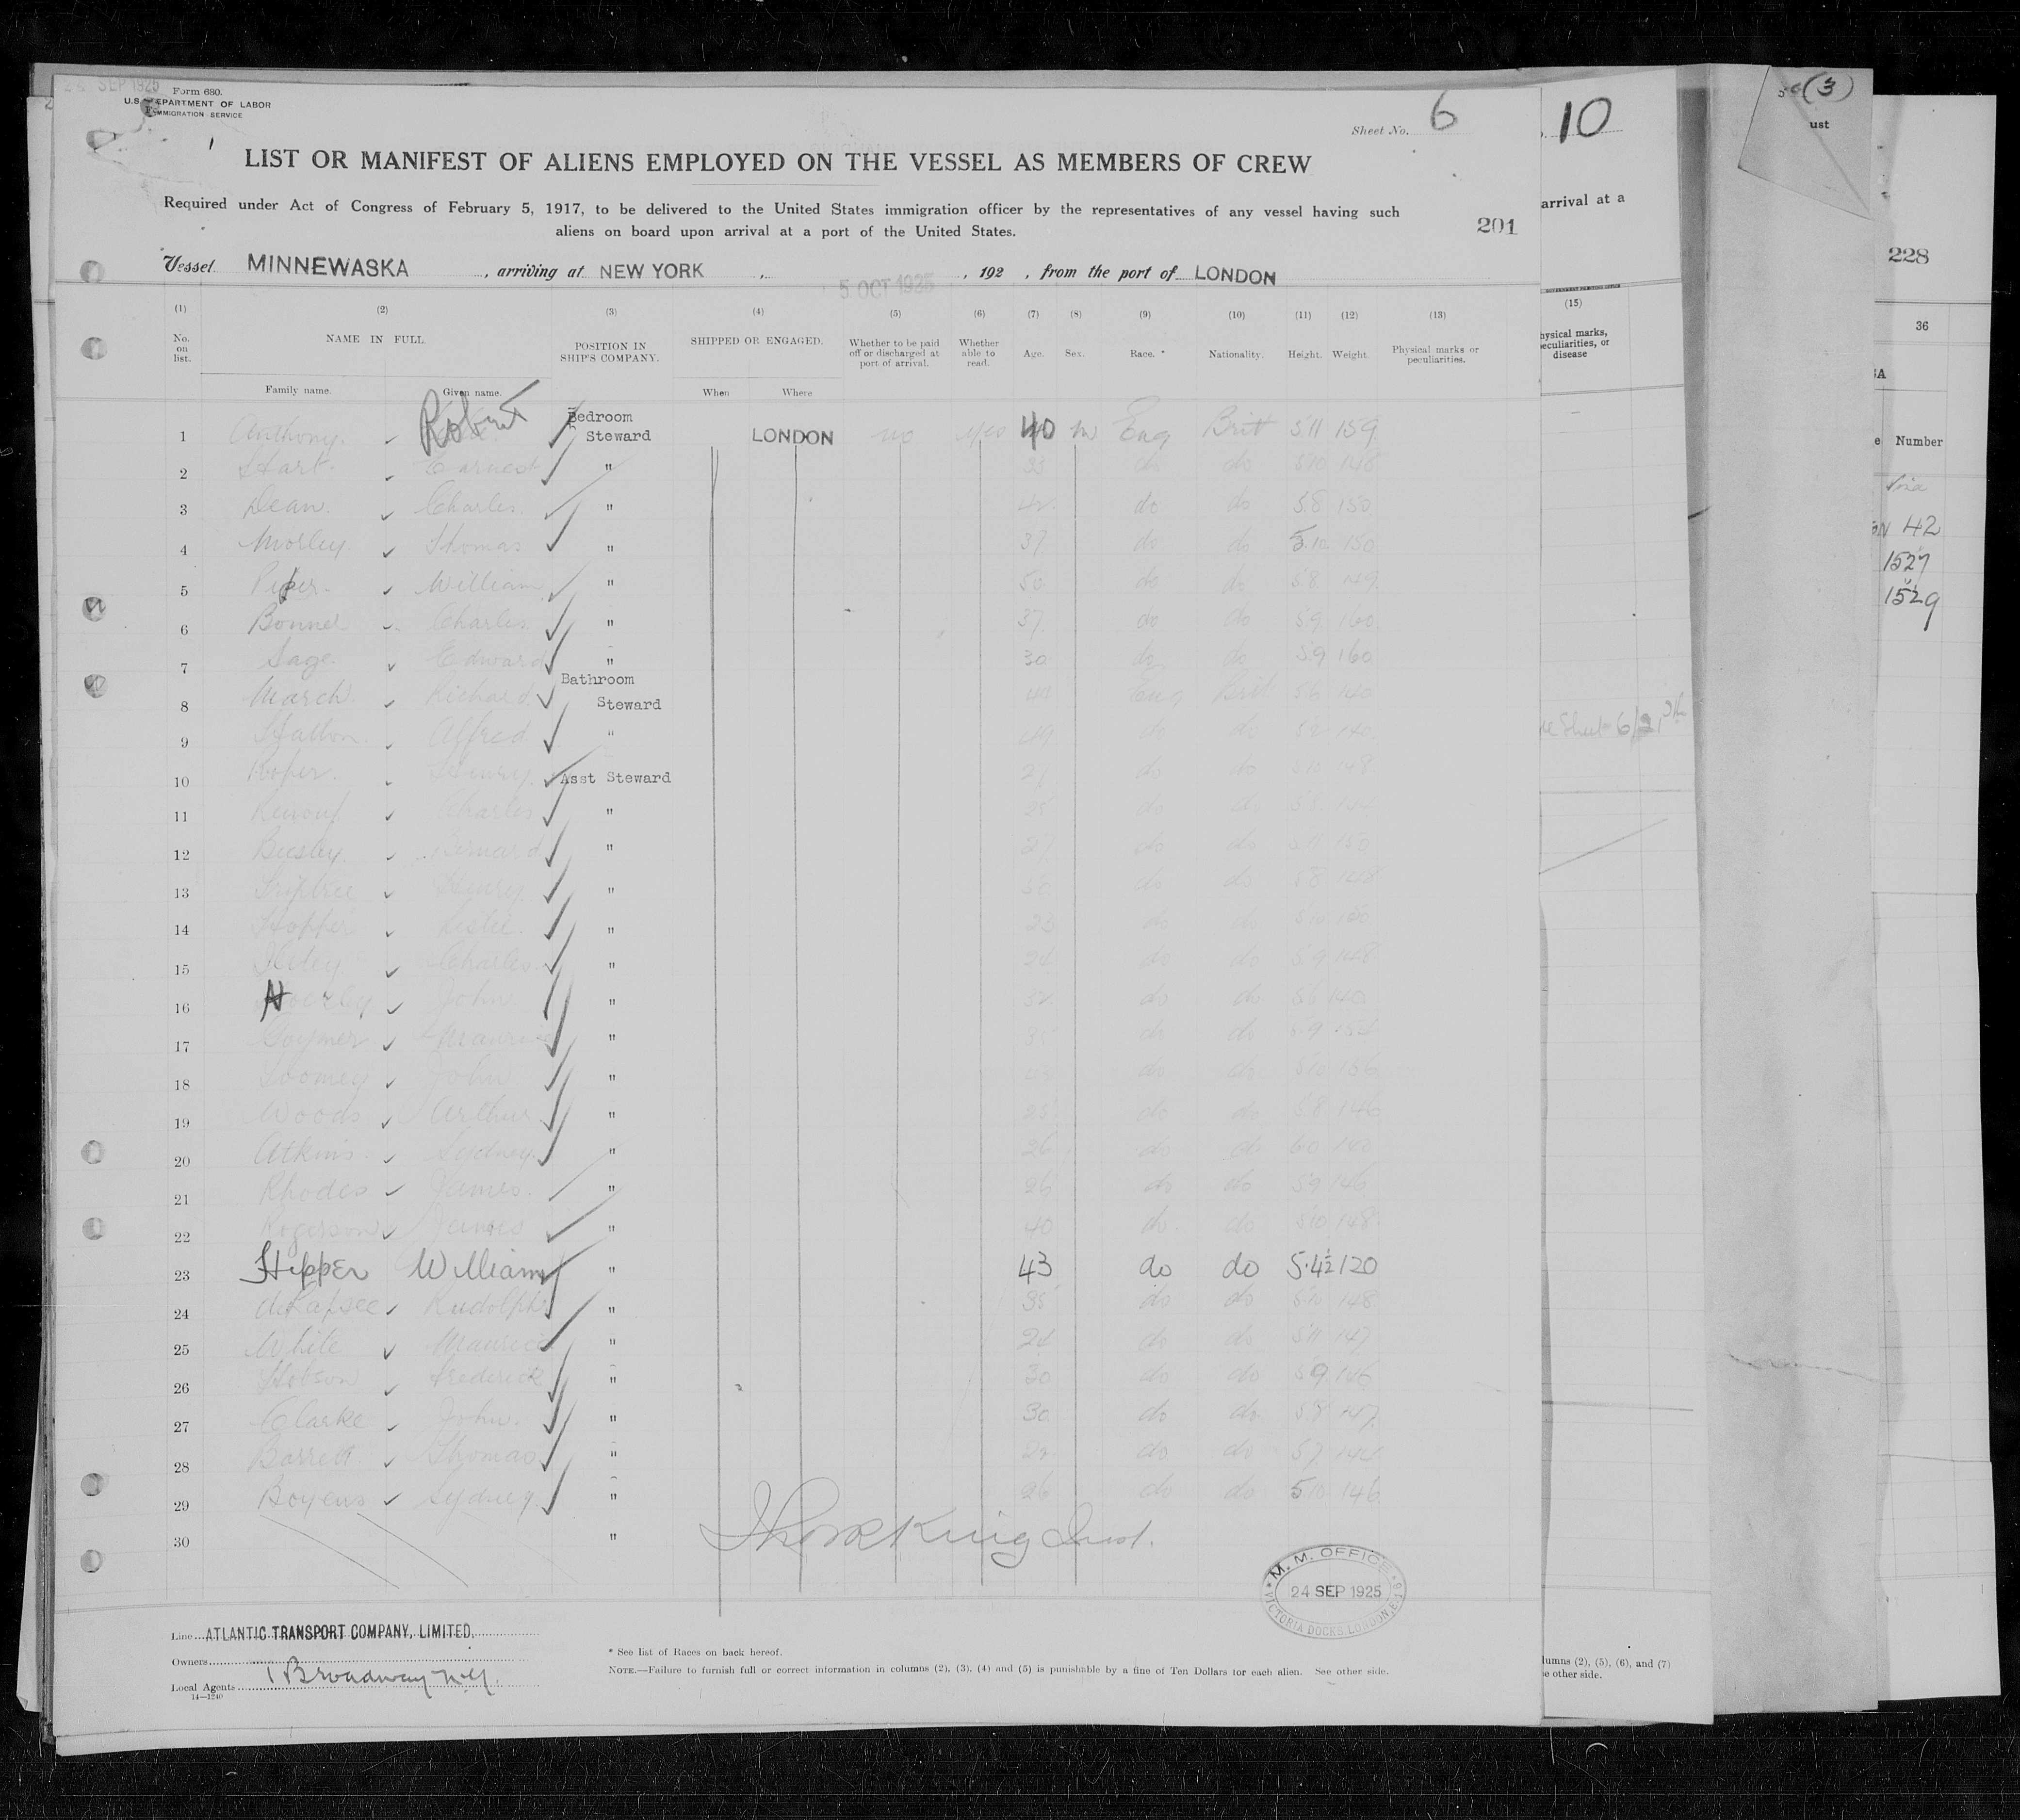 SEP 1925
Form 680.
U.S. DEPARTMENT OF LABOR
IMMIGRATION SERVICE
Sheet No. 6
LIST OR MANIFEST OF ALIENS EMPLOYED ON THE VESSEL AS MEMBERS OF CREW
Required under Act of Congress of February 5, 1917, to be delivered to the United States immigration officer by the representatives of any vessel having such
aliens on board upon arrival at a port of the United States.
201
Vessel MINNEWASKA, arriving at NEW YORK, 5 OCT 1925, 192 , from the port of LONDON
(1) (2) (3) (4) (5) (6) (7) (8) (9) (10) (11) (12) (13)
No. on list. NAME IN FULL. POSITION IN SHIP'S COMPANY. SHIPPED OR ENGAGED. Whether to be paid off or discharged at port of arrival. Whether able to read. Age. Sex. Race. * Nationality. Height. Weight. Physical marks or peculiarities.
Family name. Given name. When Where
1 Anthony Robert Bedroom Steward LONDON no yes 40 m Eng Brit 5.11 159
2 Hart Earnest " do do 5.10 148
3 Dean Charles " 42 do do 5.8 150
4 Morley Thomas " 37 do do 5.10 150
5 Piper William " 50 do do 5.8 149
6 Bonner Charles " 37 do do 5.9 160
7 Sage Edward " 30 do do 5.9 160
8 March Richard Bathroom Steward Eng Brit 5.6 140
9 Alfred " do do 140
10 Roper Henry Asst Steward do do 5.10 148
11 Renouf Charles " do do
12 Beesley Bernard " do do 5.11 150
13 Henry " do do 5.8 148
14 Hopper Leslie " 23 do do 5.10 150
15 Charles " 24 do do 5.9 148
16 John " do do 5.6 140
17 Gaymer Maurice " do do 5.9
18 Toomey John " do do 5.10 156
19 Woods Arthur " 25 do do 5.8 146
20 Atkins Sydney " 26 do do 6.0 140
21 Rhodes James " 26 do do 5.9 146
22 Rogerson James " 40 do do 5.10 148
23 Hipper William " 43 do do 5.4½ 120
24 Rudolph " 35 do do 5.10 148
25 White Maurice " 24 do do 5.11 147
26 Hobson Frederick " 30 do do 5.9 146
27 Clarke John " 30 do do 5.8 147
28 Barrett Thomas " do do 5.7 144
29 Boyens Sydney " 26 do do 5.10 146
30 "
M. M. OFFICE
24 SEP 1925
VICTORIA DOCKS, LONDON, E.16
Line ATLANTIC TRANSPORT COMPANY, LIMITED,
Owners
Local Agents 1 Broadway N.Y.
14—1240
* See list of Races on back hereof.
NOTE.—Failure to furnish full or correct information in columns (2), (3), (4) and (5) is punishable by a fine of Ten Dollars for each alien. See other side.
10
arrival at a
(15)
hysical marks,
eculiarities, or
disease
Sheet 6/2
lumns (2), (5), (6), and (7)
e other side.
(3)
ust
228
36
IA
e Number
42
1527
1529